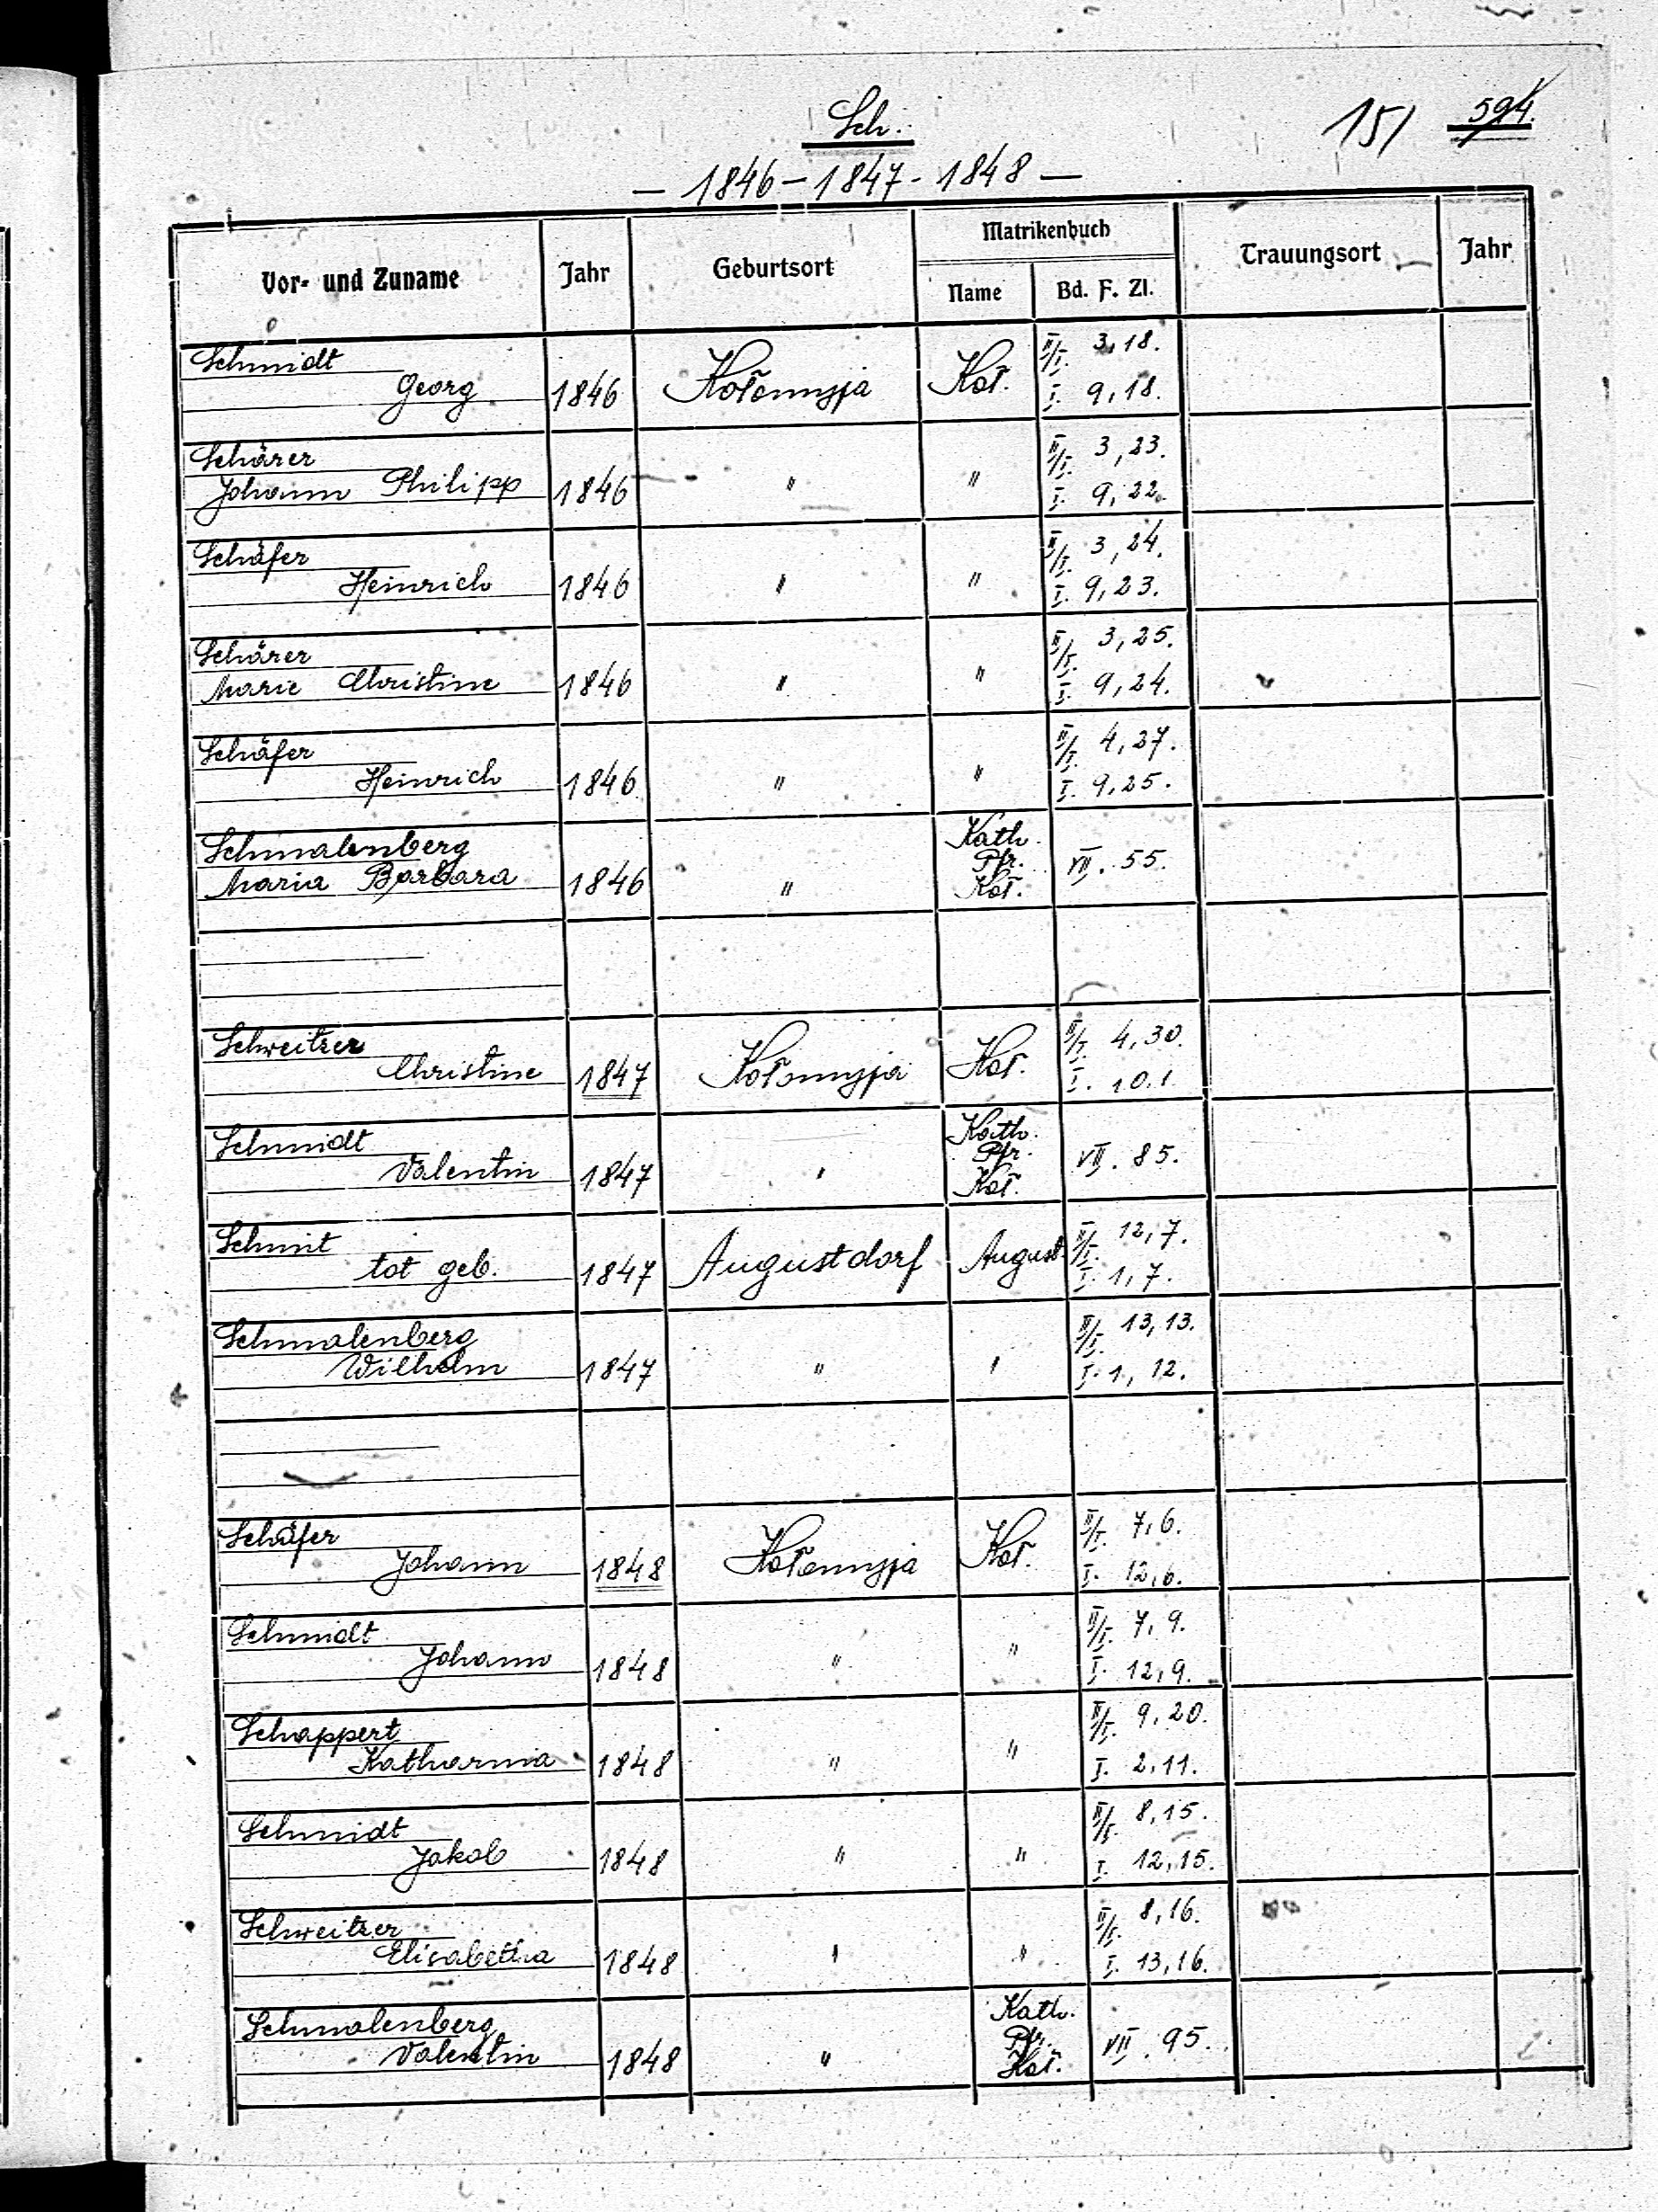 Sch.
151 594.
— 1846 – 1847 - 1848 —
Vor- und Zuname Jahr Geburtsort Matrikenbuch Trauungsort Jahr
Name Bd. F. Zl.
Schmidt II/I. 3,18.
Georg 1846 Kołomyja Koł. I. 9,18.
Schärer II/I. 3,23.
Johann Philipp 1846 " " I. 9,22.
Schäfer II/I. 3,24.
Heinrich 1846 " " I. 9,23.
Schärer II/I. 3,25.
Marie Christine 1846 " " I. 9,24.
Schäfer II/I. 4,27.
Heinrich 1846 " " I. 9,25.
Schmalenberg Kath.
Maria Barbara 1846 " Pfr. VII. 55.
Koł.
Schweitzer II/I. 4,30.
Christine 1847 Kołomyja Koł. I. 10.1.
Schmidt Kath.
Valentin 1847 " Pfr. VII. 85.
Koł.
Schmit II/I. 12,7.
tot geb. 1847 Augustdorf August. I. 1,7.
Schmalenberg II/I. 13,13.
Wilhelm 1847 " " I. 1,12.
Schäfer II/I. 7,6.
Johann 1848 Kołomyja Koł. I. 12,6.
Schmidt II/I. 7,9.
Johann 1848 " " I. 12,9.
Schappert II/I. 9,20.
Katharina 1848 " " I. 2,11.
Schmidt II/I. 8,15.
Jakob 1848 " " I. 12,15.
Schweitzer II/I. 8,16.
Elisabetha 1848 " " I. 13,16.
Schmalenberg Kath.
Valentin 1848 " Pfr. VII. 95.
Koł.